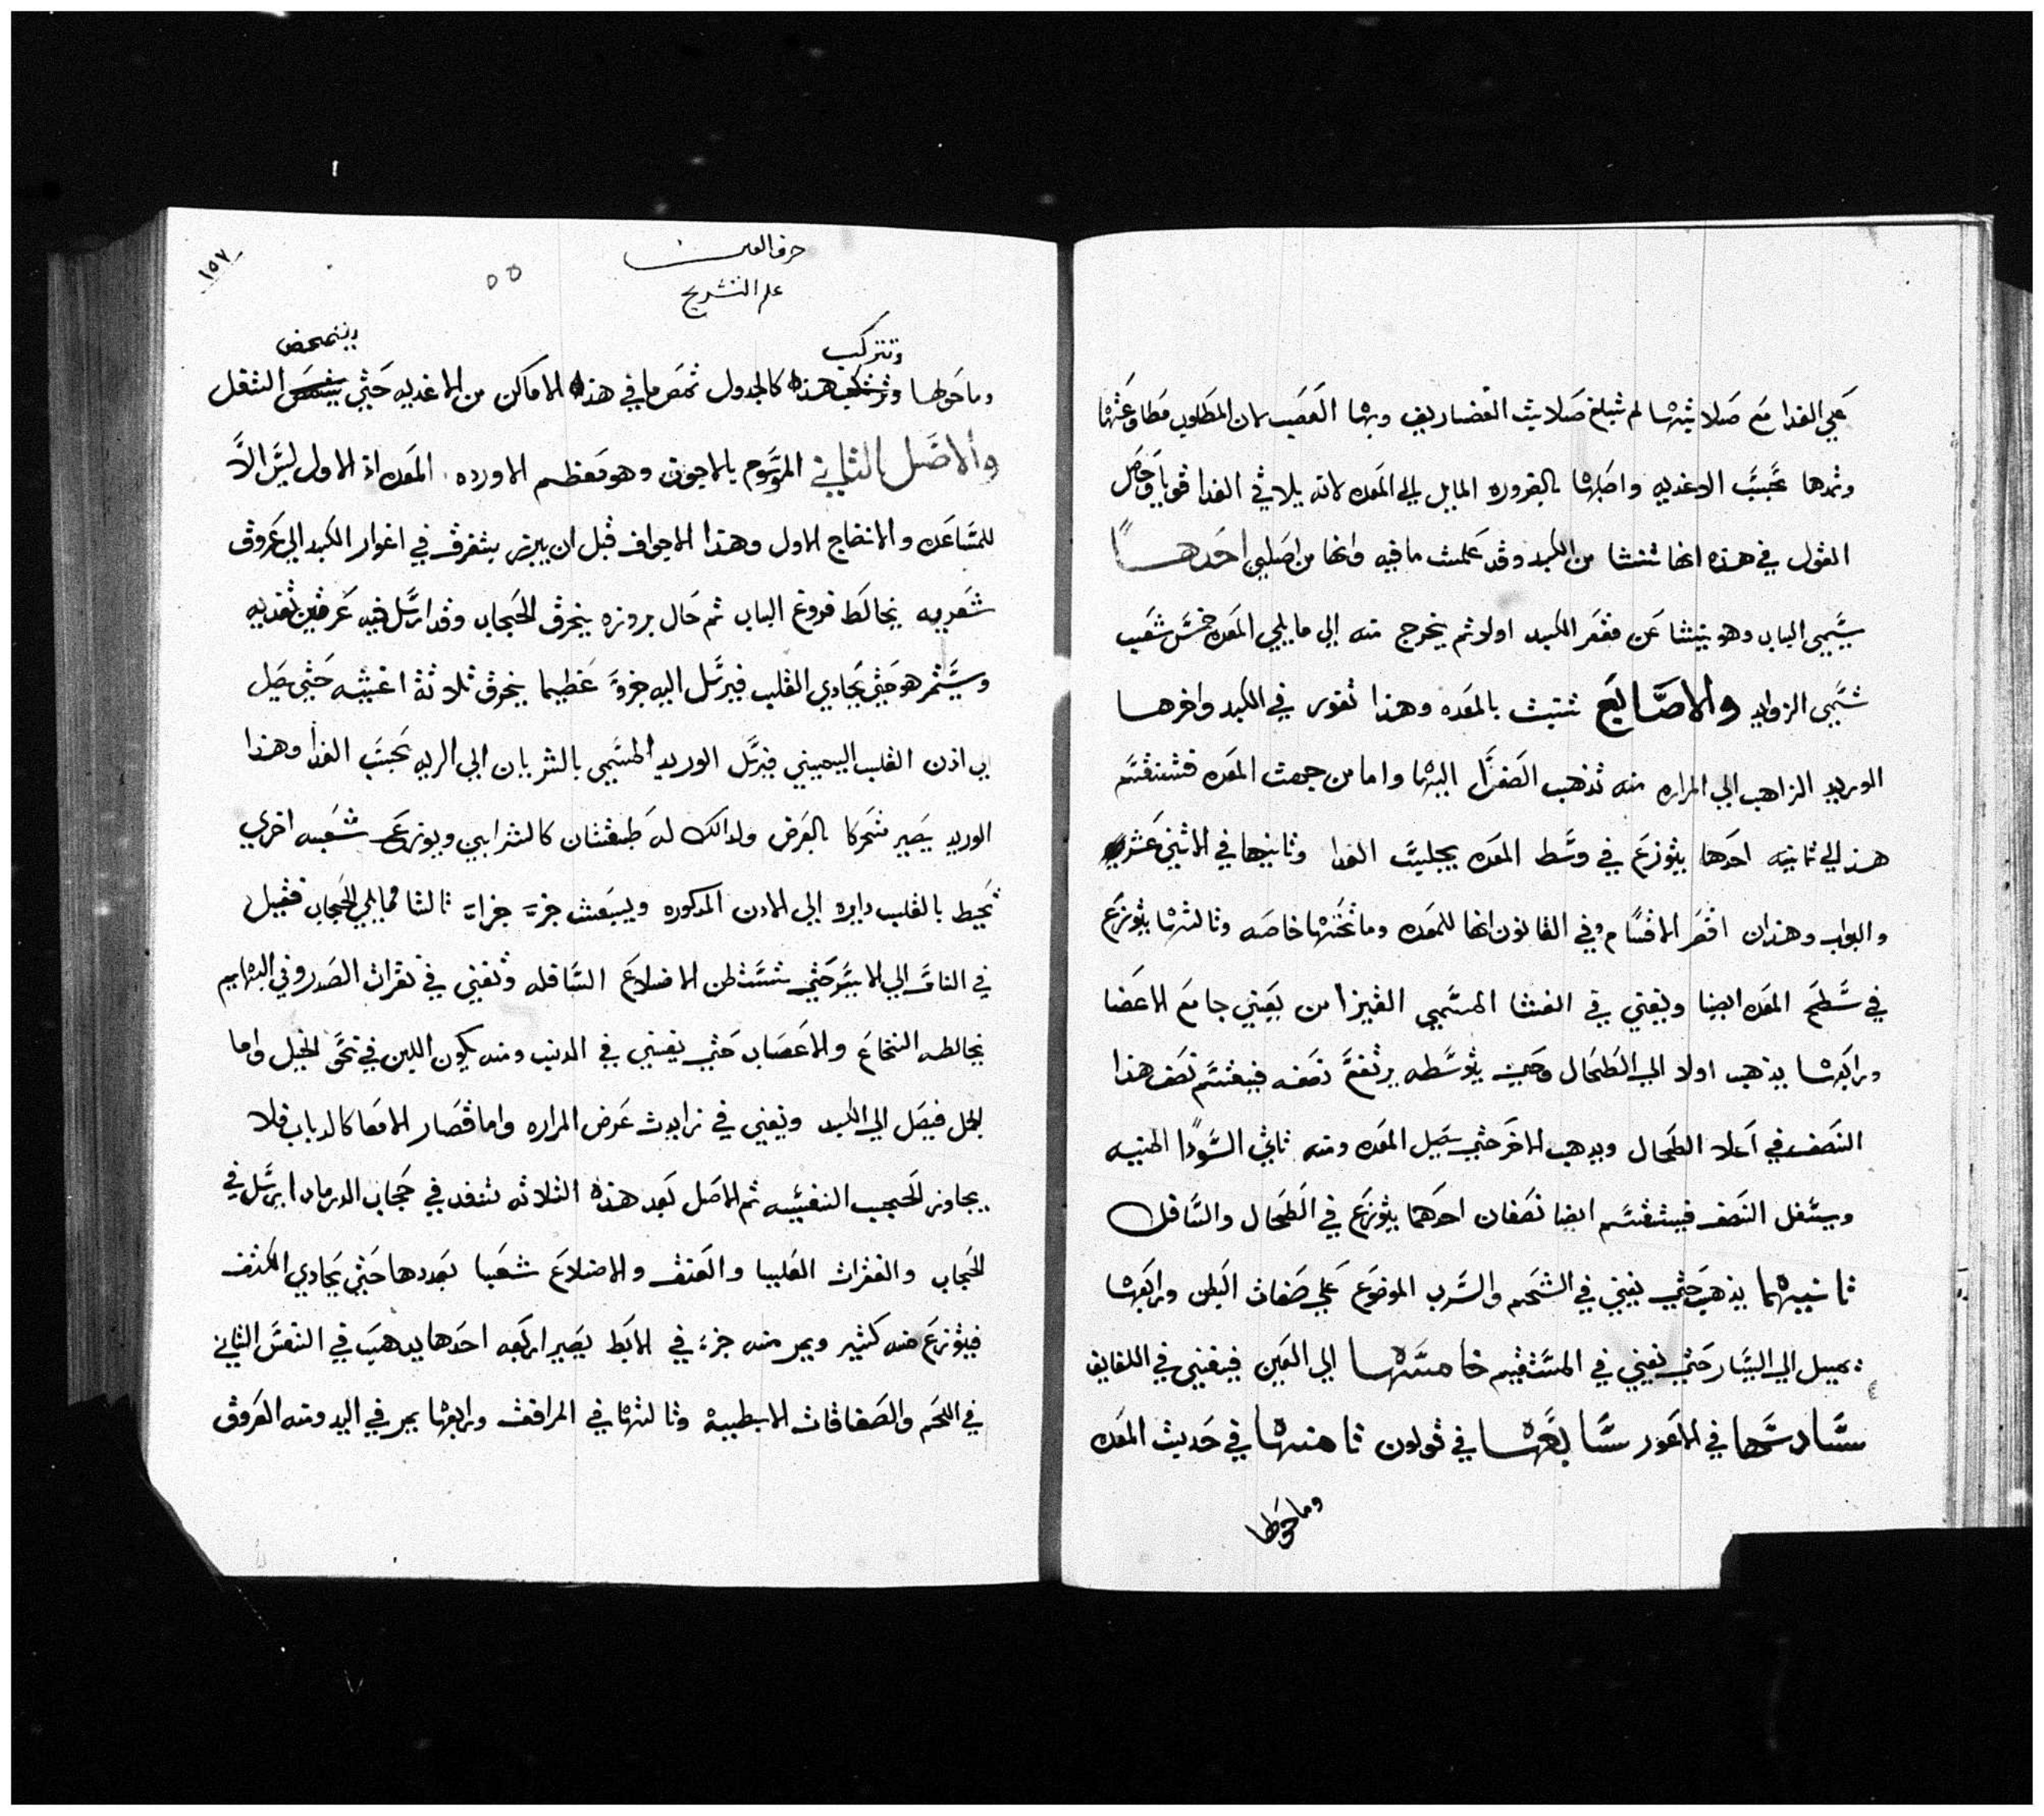 علي الغدا مع صلابتها لم تبلغ صلابت الغضاريف وبها العصب لان المطلوب مطاوعتها
وتمدها بحسب الاغديه واصلها بالضروره المايل الي المعده لانه يلاقي الغدا قويا وحاصل
القول في هذه انها تنشا من الكبد وقد علمت ما فيه وانها من اصلين احدهـا
يسمي الباب وهو ينشا عن مقعر الكبد اولا ثم يخرج منه الي ما يلي المعده خمس شعب
تسمي الزوايد والاصابع تتبت بالمعده وهذا تقور في الكبد واخرها
الوريد الزاهب الي المراره منه تذهب الصفرا اليها واما من جهت المعده فتنقسم
هذ الي ثمانيه احدها يتوزع في وسط المعده يجليت الغدا وثانيها في الاثني عشري
والبواب وهذان اقصر الاقسام وفي القانون انها للمعده وما تحتها خاصه وثالثها يتوزع
في سطح المعده ايضا ويفني في الغشا المسمي القيزامن يعني جامع الاعضا
ورابعها يذهب اولا الي الطحال وحين يتوسطه يرتفع نصفه فيقسم نصف هذا
النصف في اعلا الطحال ويدهب الاخر حتي يصل المعده ومنه تاتي السودا المنبه
ويسفل النصف فينقسم ايضا نصفان احدهما يتوزع في الطحال والسافل
ثانيهما يذهب حتي يفني في الشحم والسرب الموضوع علي صفات البطن ورابعها
يميل الي اليسار حتي تفني في المستقيم خامسها الي اليمين فيفني في اللفايف
سادسها في الاعور سابعها في قولون ثامنها في حديث المعده
وما حولها
حرف العين
علم التشريح
١٥٧
٥٥
وتتركب
ويتمحض
وما حولها وتركب هذه كالجدول تمص ما في هذه الاماكن من الاغديه حتي ينمص الثقل
والاصل الثاني الموسوم بالاجوف وهو معظم الاورده المعده اذ الاول ليس الا
للمساعده والانضاج الاول وهذا الاجواف قبل ان يبرز يتفرق في اغوار الكبد الي عروق
شعريه يخالط فروع الباب ثم حال بروزه يخرق الحجاب وقد ارسل فيه عرقين تغديه
ويستمر هو حتي يحادي القلب فيرسل اليه جزوً عظيما يخرق ثلاثة اغشيه حتي يصل
الي اذن القلب اليميني فيرسل الوريد المسمي بالشريان الي الريه بحسب الغدا وهذا
الوريد يصير متحركا بالعرض ولدالك له طبقتان كالشرايين ويوزع شعبه اخري
تحيط بالقلب دايره الي الادن المدكوره ويبعث جزءً جزاءً ثالثا مما يلي الحجاب فقيل
في الناس الي الايسر حتي يستبطن الاضلاع السافله وتفني في نقرات الصدر وفي البهايم
يخالطه النخاع والاعصاب حتي يفني في الدنب ومنه يكون اللين في نحو الخيل واما
بالحل فيصل الي الكبد ويفني في زايدت عرض المراره واما قصار الامعا كالدباب فلا
يجاوز الحجب التفتيه ثم الاصل بعد هذه الثلاثه تنفد في حجاب الدرمان ا يرسل في
الحجاب والفقرات العليا والعنق والاضلاع شعبا بعددها حتي يحادي الكتف
فيتوزع منه كثير ويمر منه جزءً في الابط يصير اربعه احدها يدهب في القص الثاني
في اللحم والصفاقات الابطيه وثالثها في المرافق ورابعها يمر في اليد ومنه العروق